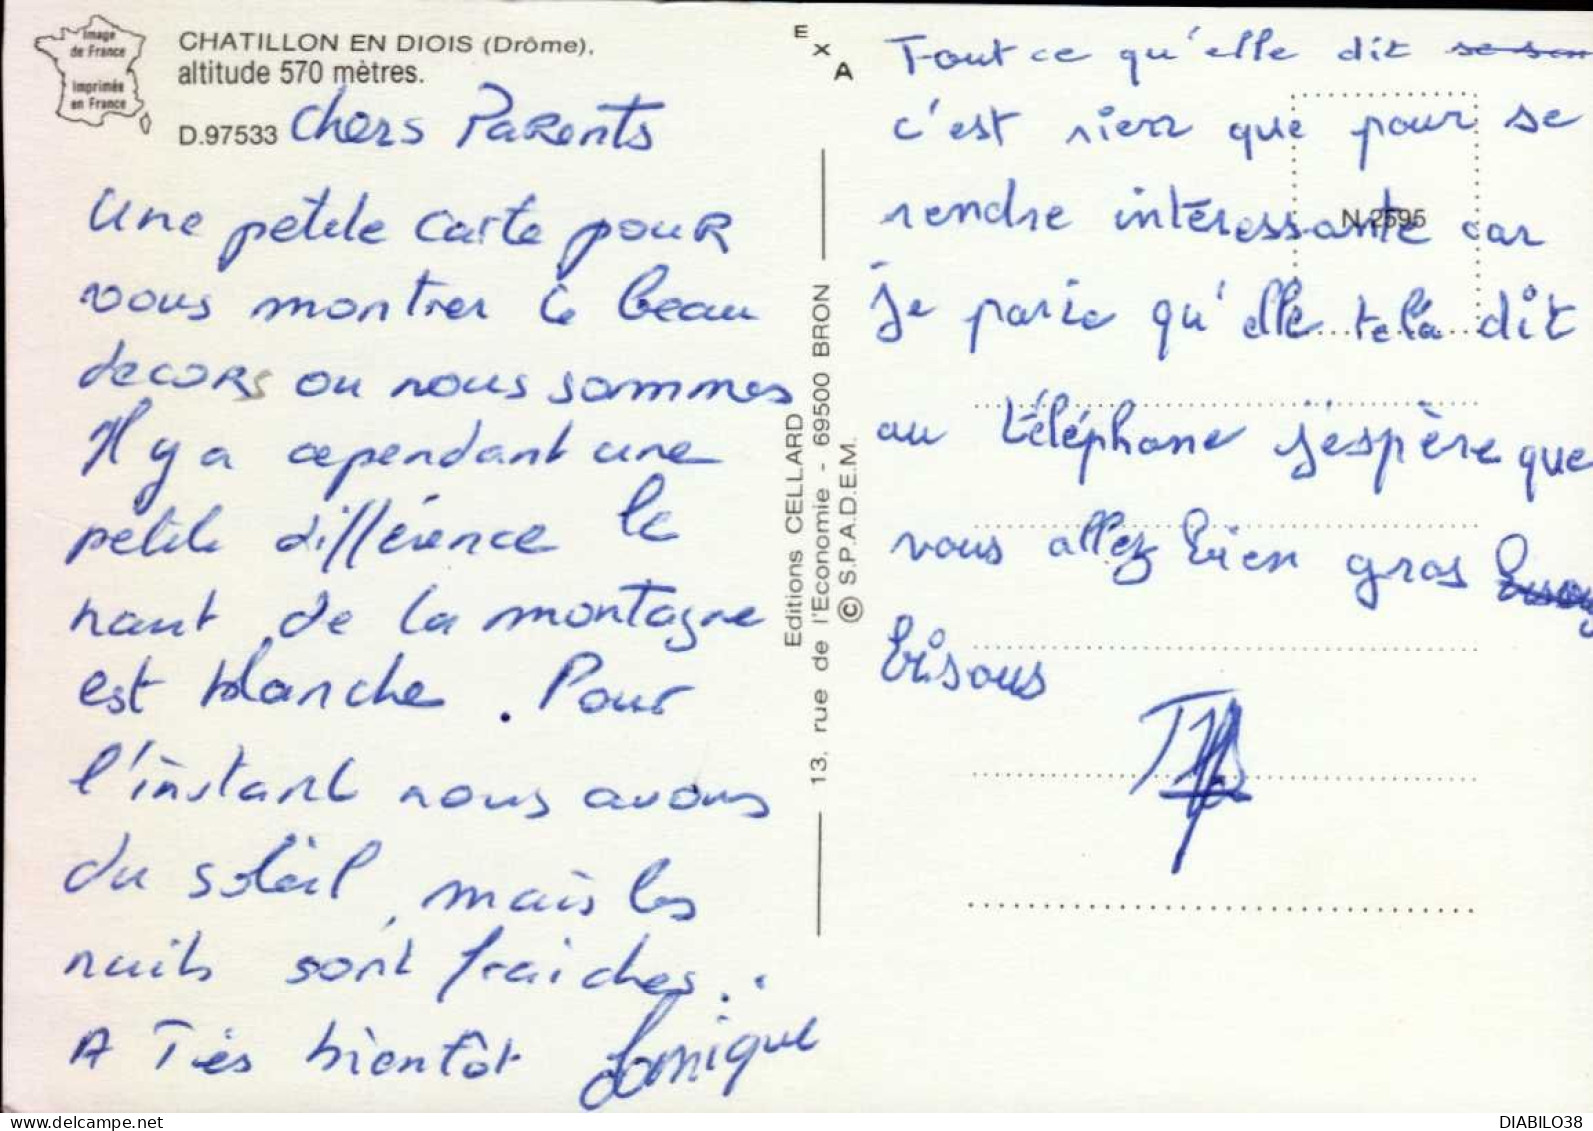 Image
de France
Imprimée
en France
CHATILLON EN DIOIS (Drôme),
altitude 570 mètres.
D.97533
Chers Parents
Une petite carte pour
vous montrer le beau
decors ou nous sommes
Il y a cependant une
petite différence le
haut de la montagne
est blanche. Pour
l'instant nous avons
du soleil, mais les
nuits sont fraiches..
A Très bientôt
Editions CELLARD
13, rue de l'Economie - 69500 BRON
© S.P.A.D.E.M.
EXA
Tout ce qu'elle dit
c'est rien que pour se
rendre intéressante car
N 2595
je parie qu'elle te la dit
au téléphone j'espère que
vous allez bien gros
bisous
DIABILO38